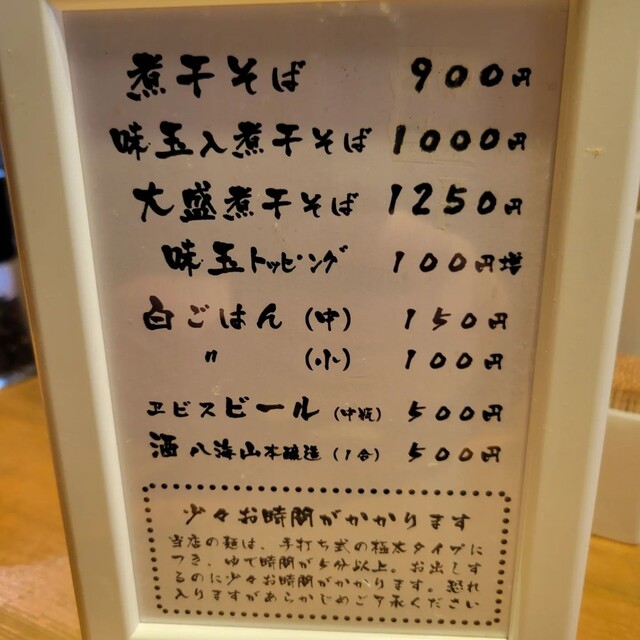 煮干そば 900円
味玉入煮干そば 1000円
大盛煮干そば 1250円
味玉トッピング 100円増
白ごはん (中) 150円
〃 (小) 100円
ヱビスビール (中瓶) 500円
酒 八海山本醸造 (1合) 500円
少々お時間がかかります
当店の麺は、手打ち式の極太タイプに
つき、ゆで時間が5分以上。お出しす
るのに少々お時間がかかります。恐れ
入りますがあらかじめご了承ください